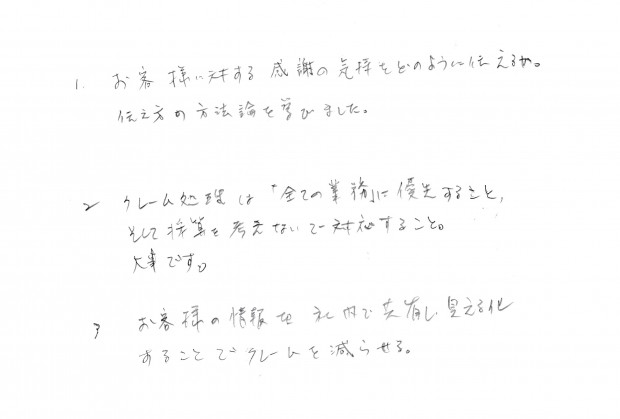 1. お客様に対する感謝の気持をどのように伝えるか。
伝え方の方法論を学びました。
2 クレーム処理は「全ての業務」に優先すること、
そして採算を考えないで対応すること。
大事です。
3 お客様の情報を社内で共有し見える化
することでクレームを減らせる。